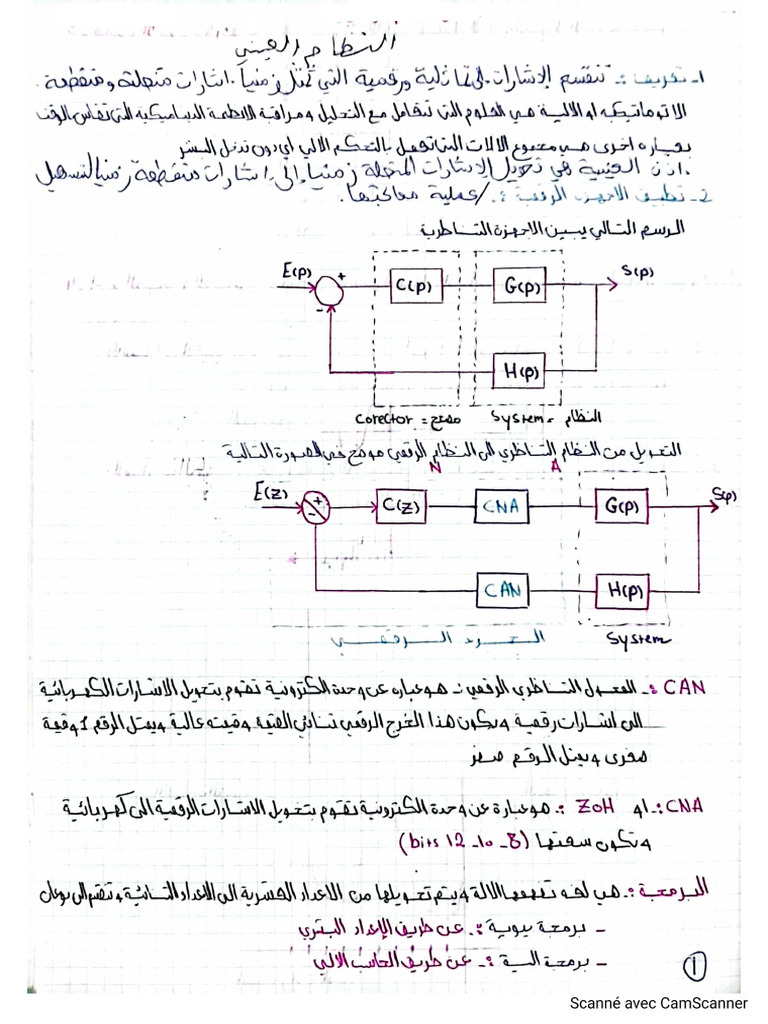 النظام العيني
1- تعريف :- تنقسم الإشارات الى تماثلية ورقمية التي تمثل زمنياً. اشارات متصلة و متقطعة.
الاتوماتيكية او الالية هي العلوم التي تتعامل مع التحليل و مراقبة الانظمة الديناميكية التي تقاس الوقت
بعبارة اخرى هي مجموع الالات التي تعمل بالتحكم الالي أي دون تدخل البشر
اذن العينية هي تحويل الإشارات المتصلة زمنياً إلى اشارات متقطعة زمنيا لتسهيل
عملية معالجتها.
2- تطبيق الاجهزة الرقمية :
الرسم التالي يبين الاجهزة التناظرية
E(p) + - C(p) G(p) S(p)
H(p)
Corector = مصحح System = النظام
التحويل من النظام التناظري الى النظام الرقمي موضح في الصورة التالية :
N A
E(z) + - C(z) CNA G(p) S(p)
CAN H(p)
الجزء الرقمي System
CAN :- المحول التناظري الرقمي :- هو عبارة عن وحدة الكترونية تقوم بتحويل الاشارات الكهربائية
الى اشارات رقمية و يكون هذا الخرج الرقمي ثنائي القيمة وقيمة عالية و يمثل الرقم 1 وقيمة
صغرى و يمثل الرقم صفر
CNA :- او ZOH :- هو عبارة عن وحدة الكترونية تقوم بتحويل الاشارات الرقمية الى كهربائية
و تكون سعتها (8 - 10 - 12 bits)
البرمجة :- هي لغة تفهمها الالة و يتم تحويلها من الاعداد العشرية الى الاعداد الثنائية و تنقسم الى
- برمجة يدوية :- عن طريق الإعداد البشري
- برمجة الية :- عن طريق الحاسب الالي
1
Scanné avec CamScanner